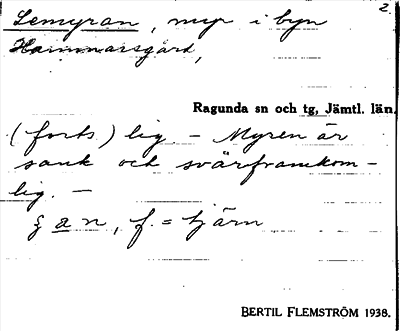 2.
Lemyran, myr i byn
Hammarsgård,
Ragunda sn och tg, Jämtl. län.
(forts.) lig. - Myren är
sank och svårframkom-
lig. -
§ a n, f. = tjärn
BERTIL FLEMSTRÖM 1938.